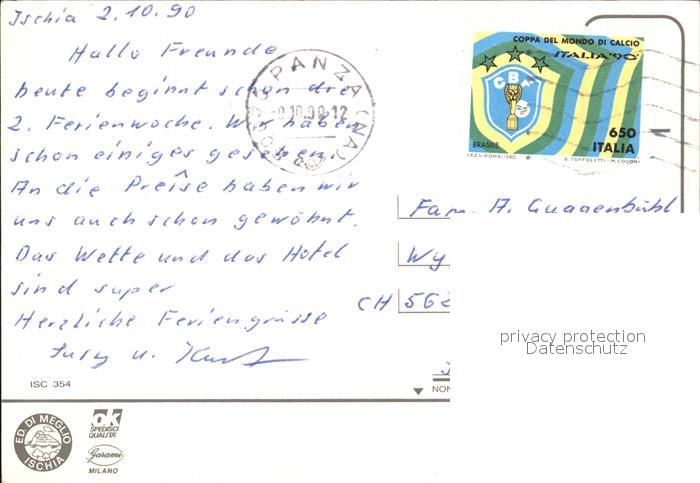 Ischia 2.10.90
Hallo Freunde
heute beginnt schon die
2. Ferienwoche. Wir haben
schon einiges gesehen.
An die Preise haben wir
uns auch schon gewöhnt.
Das Wette und das Hotel
sind super
Herzliche Feriengrüsse
Susy u. Kurt
ISC 354
ED. DI MEGLIO
ISCHIA
ok
SPEDISCI
QUALITA'
Garami
MILANO
PANZA (NA)
2.10.90-12
COPPA DEL MONDO DI CALCIO
ITALIA '90
CBF
BRASILE
650
ITALIA
I.P.Z.S.-ROMA-1990
B. TOFFOLETTI - M. CODONI
Fam. A. Guggenbühl
Wy
CH 562
NON
privacy protection
Datenschutz